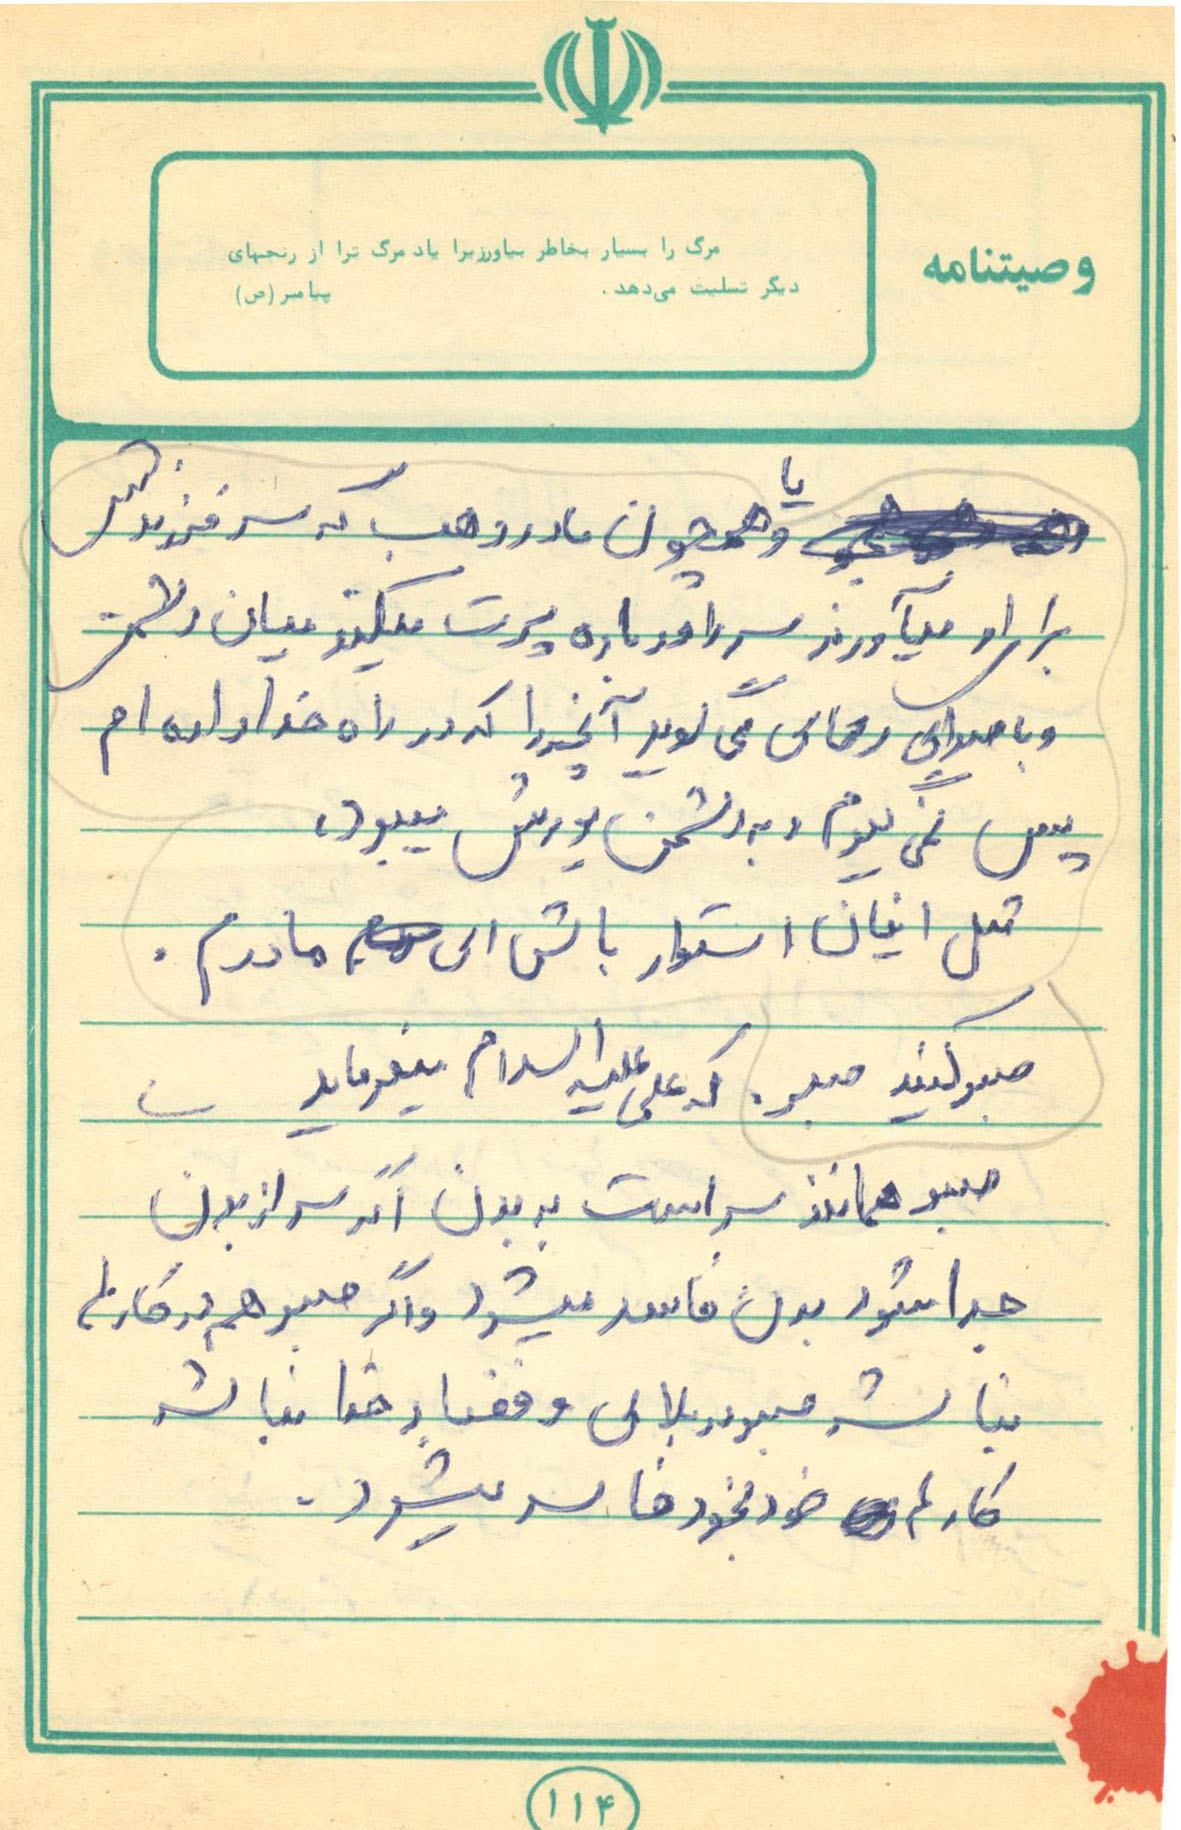 وصیتنامه
مرگ را بسیار بخاطر بیاورزیرا یاد مرگ ترا از رنجهای
دیگر تسلیت می‌دهد. پیامبر(ص)
یا
و همچون مادر وهب که سر فرزندش
برای او میآورند سر را دوباره پرت میکند میان دشمن
و با صدای رسای می گوید آنچیز را که در راه خدا داده ام
پس نمی گیرم و به دشمن یورش میبرد،
مثل اینان استوار باش ای مادرم.
صبر کنید صبر. که علی علیه السلام میفرماید
صبر همانند سر است به بدن اگر سر از بدن
جدا شود بدن فاسد میشود و اگر صبر هم در کارها
نباشد صبر در بلای و قضا بر خدا نباشد
کارها خود بخود فاسد میشود.
۱۱۴